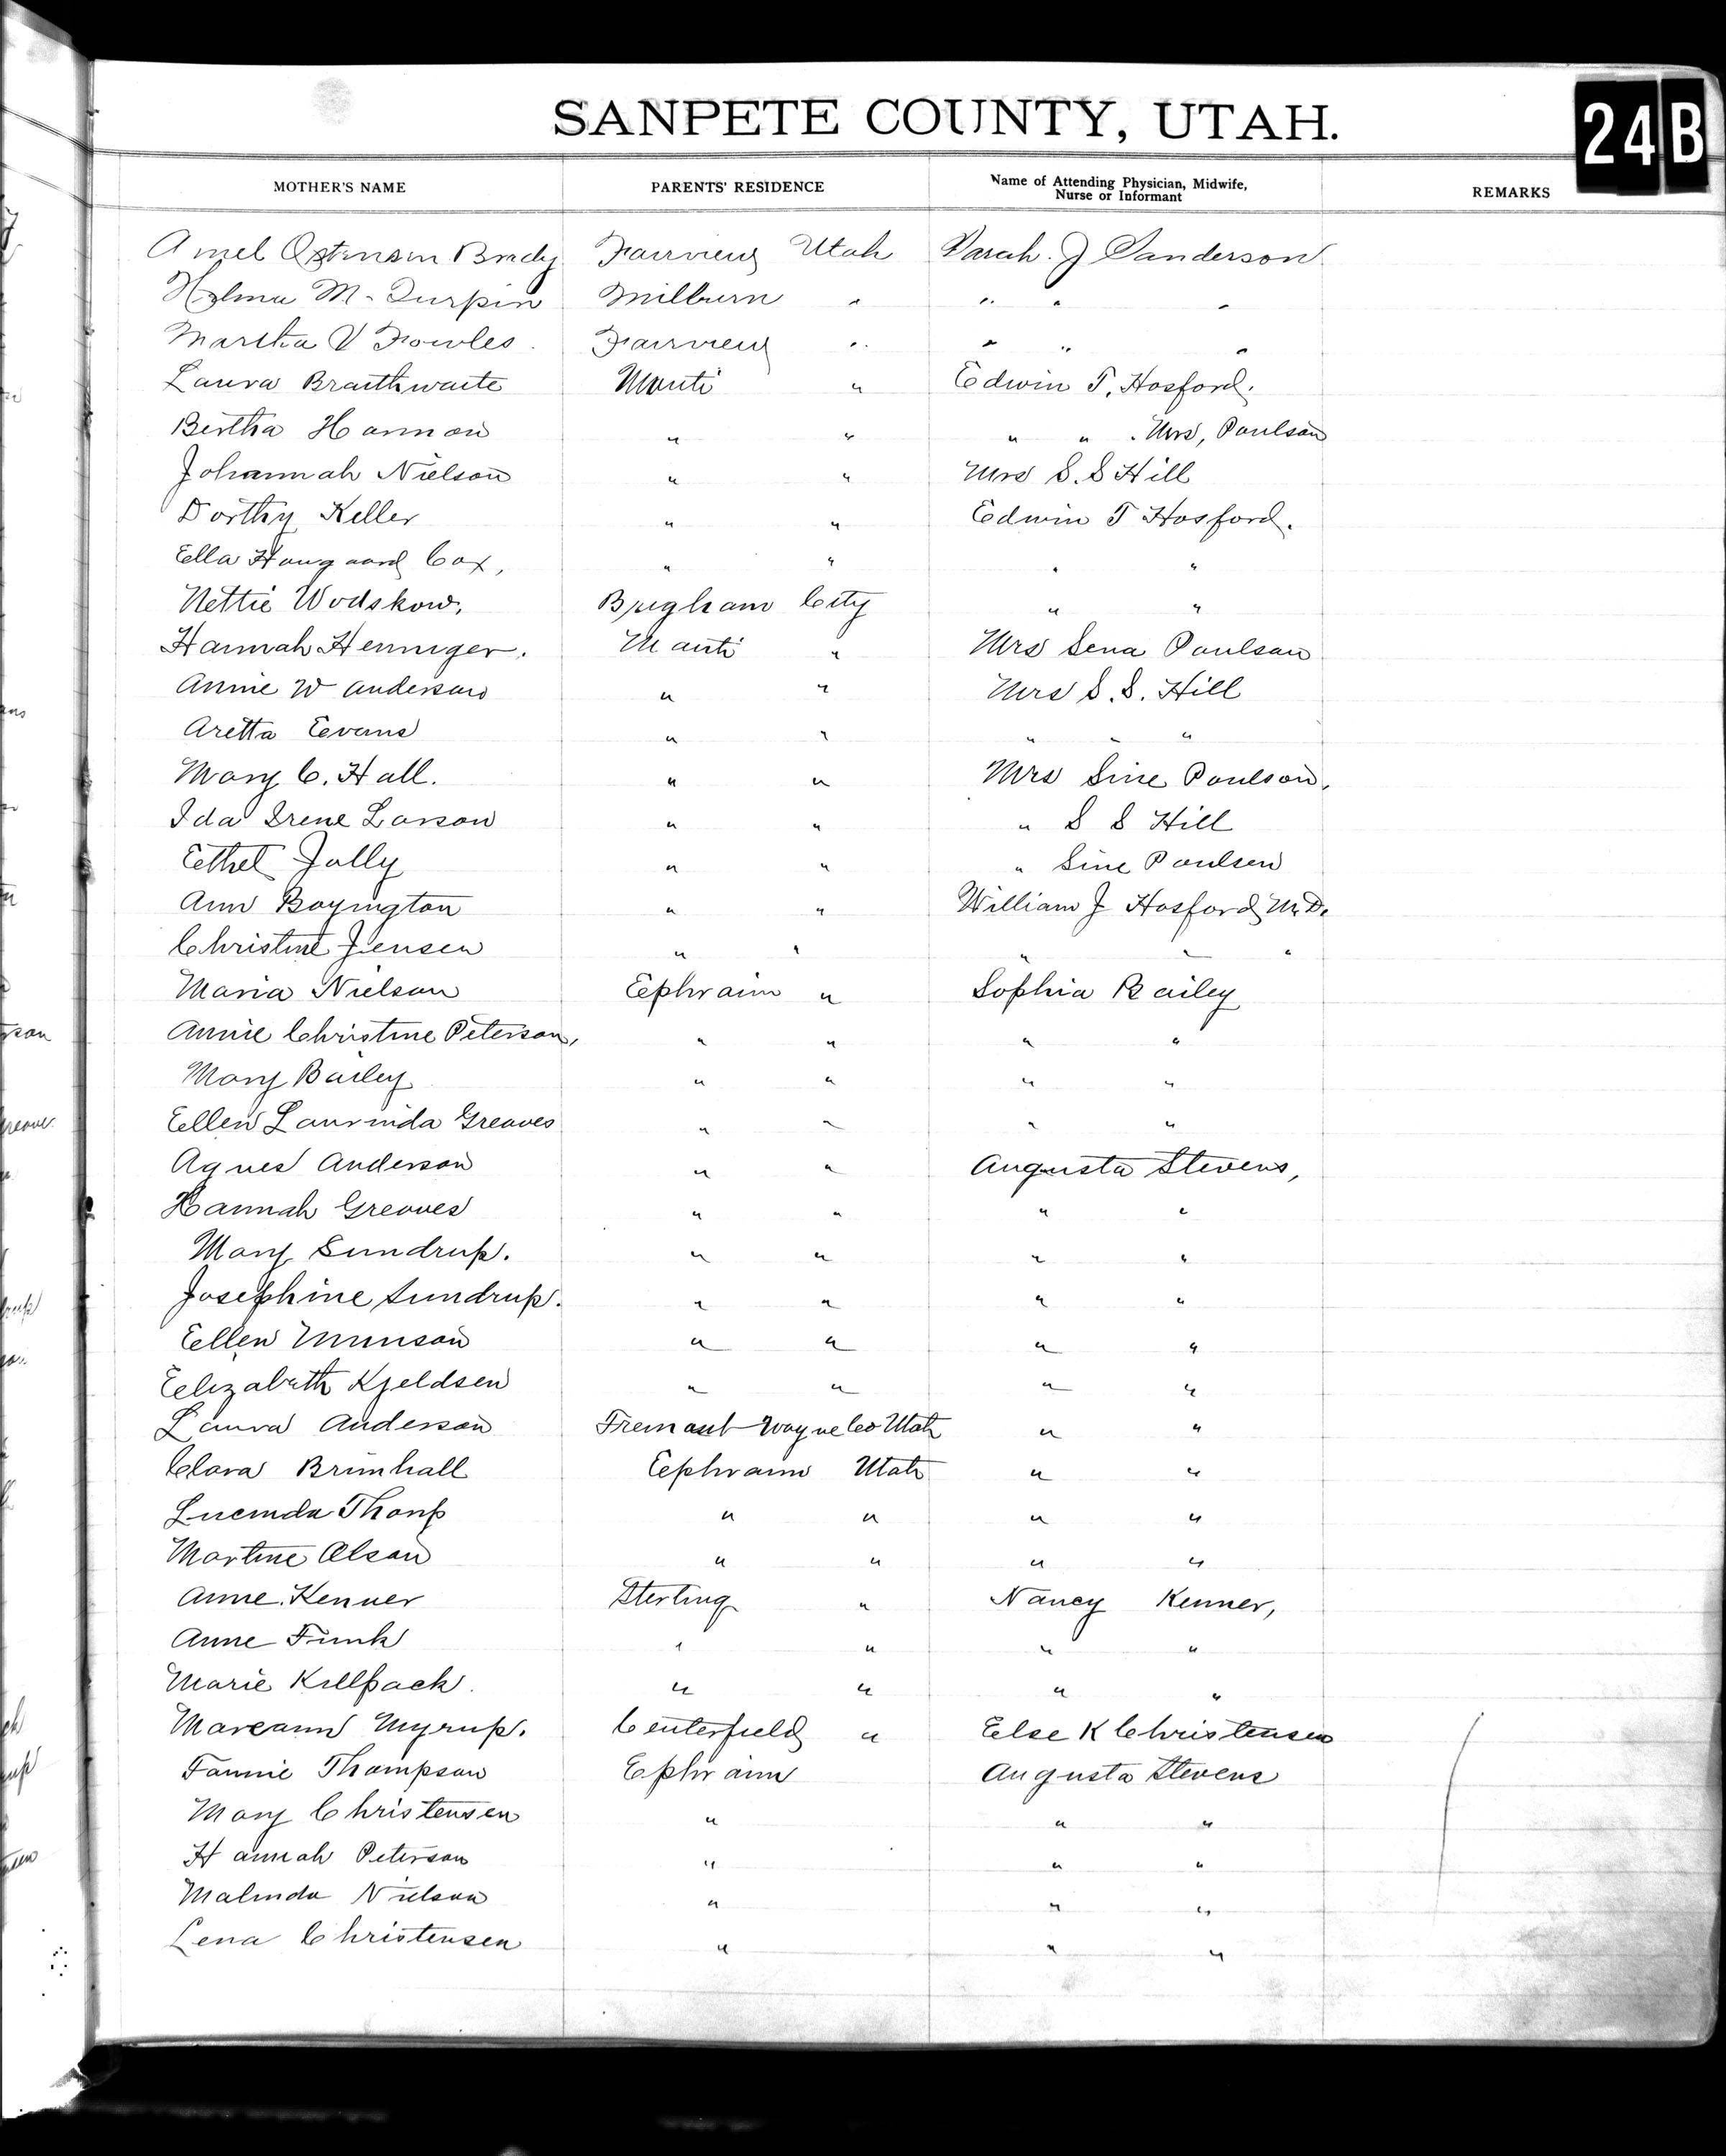 SANPETE COUNTY, UTAH.
24 B
MOTHER'S NAME PARENTS' RESIDENCE Name of Attending Physician, Midwife, Nurse or Informant REMARKS
Brady Fairview Utah Sarah. J Sanderson
M. Turpin Milburn " " " "
Martha V Fowles. Fairview " " " "
Laura Braithwaite Manti " Edwin T. Hosford.
Bertha Harmon " " " " . Mrs, Poulson
Johannah Nielson " " Mrs S. S Hill
Dorthy Keller " " Edwin T Hosford.
Ella Haugaard Cox, " " " "
Nettie Wodskow, Brigham City " "
Hannah Henniger. Manti " Mrs Sena Poulson
Annie W Anderson " " Mrs S. S. Hill
Aretta Evans " " " " "
Mary C. Hall. " " Mrs Sine Poulson,
Ida Irene Larson " " " S S Hill
Ethel Jolly " " " Sine Poulsen
Ann Boyington " " William J Hosford M.D.
Christine Jensen " " " " "
Maria Nielson Ephraim " Sophia Bailey
Annie Christine Peterson, " " " "
Mary Bailey " " " "
Ellen Laurinda Greaves " " " "
Agnes Anderson " " Augusta Stevens,
Hannah Greaves " " " "
Mary Sundrup. " " " "
Josephine Sundrup. " " " "
Ellen Munson " " " "
Elizabeth Kjeldsen " " " "
Laura Anderson Fremont Wayne Co Utah " "
Clara Brimhall Ephraim Utah " "
Lucinda Thorp " " " "
Martine Olson " " " "
Anne. Kenner Sterling " Nancy Kenner,
Anne Funk " " " "
Marie Killpack. " " " "
Mareann Myrup. Centerfield " Else K Christensen
Fannie Thompson Ephraim Augusta Stevens
Mary Christensen " " "
Hannah Peterson " " "
Malinda Nielson " " "
Lena Christensen " " "